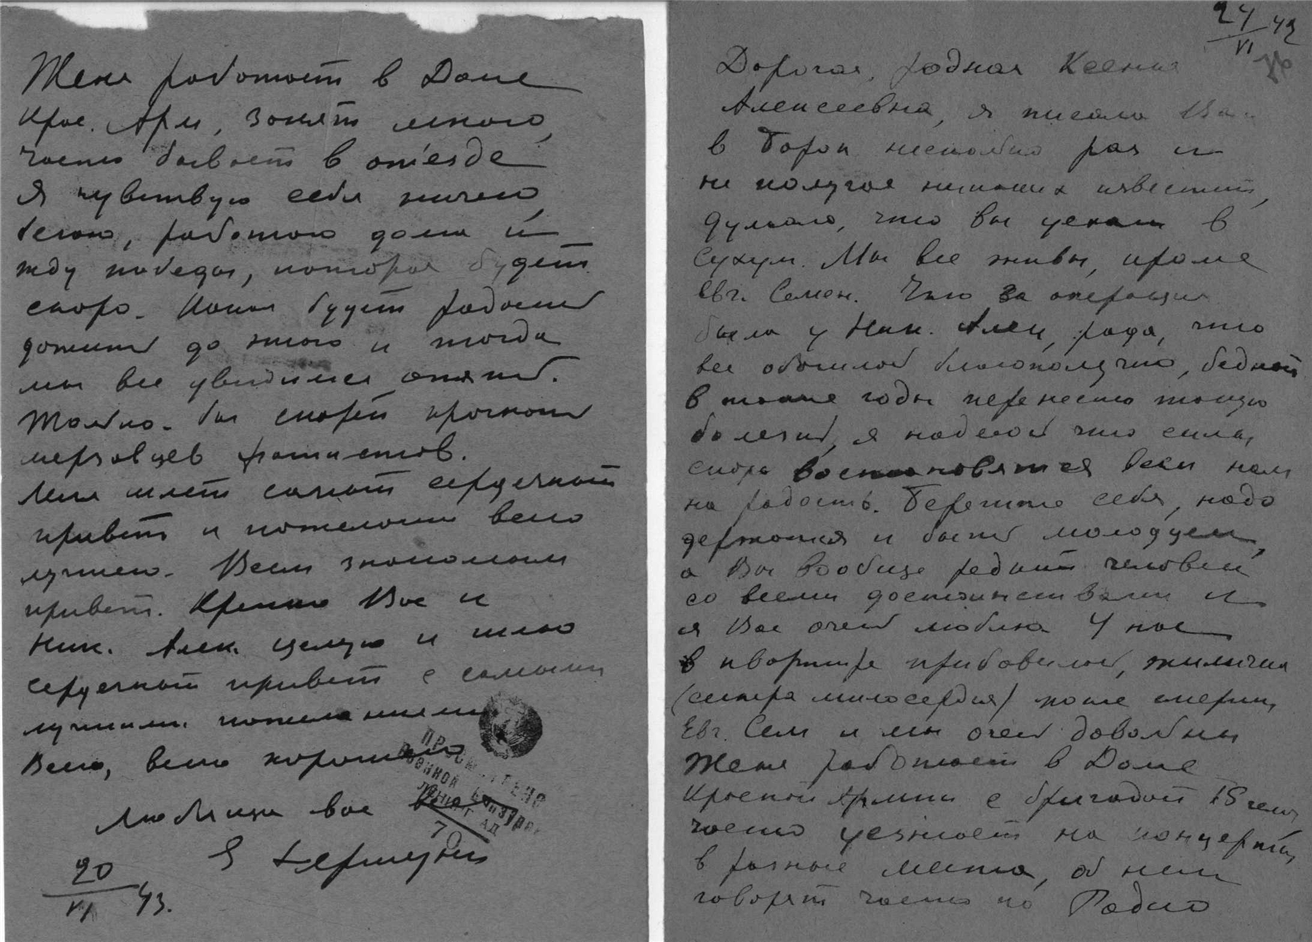 24/VI 43
Дорогая, родная Ксения
Алексеевна, я писала Вам
в Борок несколько раз и
не получая никаких известий,
думала, что Вы уехали в
Сухум. Мы все живы, кроме
Евг. Семен. Что за операция
была у Ник. Алек, рада, что
все обошлось благополучно, бедной
в такие годы перенести такую
болезнь, я надеюсь что силы
скоро восстановятся всем нам
на радость. Берегите себя, надо
держаться и быть молодцем,
а Вы вообще редкий человек
со всеми достоинствами и
я Вас очень люблю У нас
в квартире прибавилась, жиличка
(сестра милосердия) после смерти
Евг. Сем и мы очень довольны
Женя работает в Доме
Красной Армии с бригадой 15 чел
часто уезжает на концерты
в разные места, об нем
говорят часто по Радио
Женя работает в Доме
Крас. Арм, занят много,
часто бывает в отъезде
Я чувствую себя ничего,
бегаю, работаю дома и
жду победы, которая будет
скоро. Какая будет радость
дожить до этого и тогда
мы все увидимся опять.
Только бы скорей прогнать
мерзавцев фашистов.
Женя шлет самый сердечный
привет и пожелания всего
лучшего. Всем знакомым
привет. Крепко Вас и
Ник. Алек. целую и шлю
сердечный привет с самыми
лучшими пожеланиями
Всего, всего хорошего
Любящая вас
20/VI 43.
ПРОСМОТРЕНО
ВОЕННОЙ ЦЕНЗУРОЙ
ЛЕНИНГРАД
70